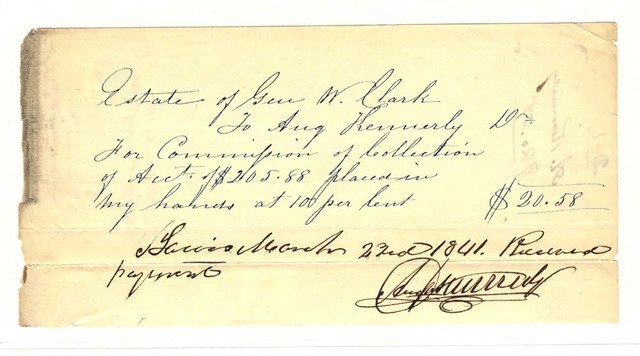 Estate of Gen W. Clark
To Aug Kennerly Dr
For Commission of Collection
of Acct. of $205.88 placed in
my hands at 10 per cent $20.58
St Louis March 23rd 1841. Received
payment
Aug Kennerly